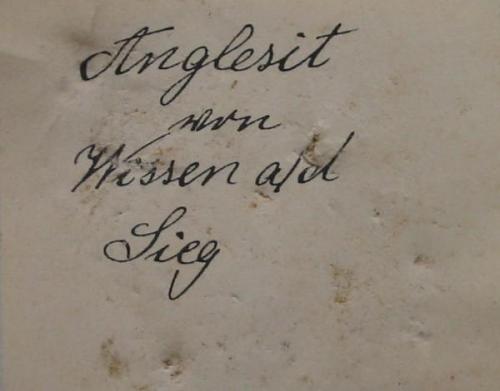 Anglesit
von
Wissen a/d
Sieg